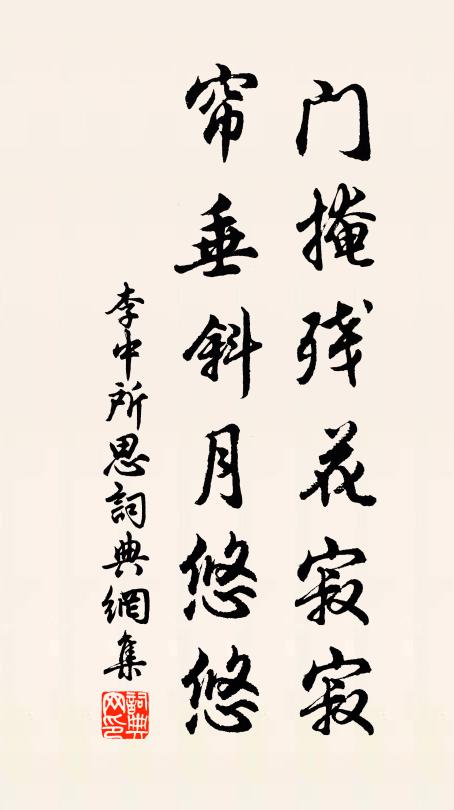 门掩残花寂寂
帘垂斜月悠悠
李中所思詞典網集
詞典网印